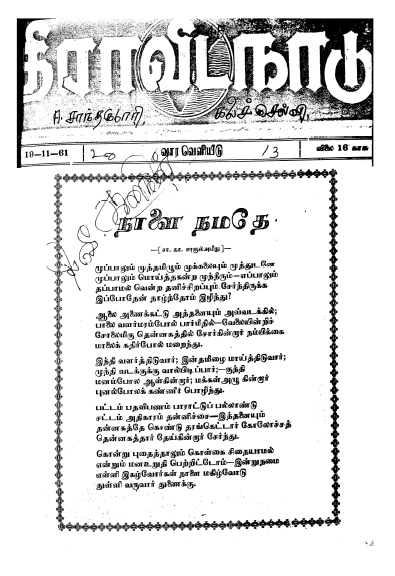 திராவிடநாடு
19-11-61
வார வெளியீடு
/3
விலை 16 காசு
நாளை நமதே
முப்பாலும் முத்தமிழும் முக்கலையும் முத்துடனே
முப்பாலும் மொய்த்தகன்ற முந்நீரும்—எப்பாலும்
தப்பாமல் வென்ற தனிச்சிறப்பும் சேர்ந்திருக்க
இப்போதேன் தாழ்ந்தோம் இழிந்து?
ஆலை அணைக்கட்டு அத்தனையும் அவ்வடக்கில்;
பாலை வளர்மரம்போல் பார்மீதில்—வேலையின்றிச்
சோலைமிகு தென்னகத்தில் சேர்கின்றார் நம்மிக்கை
மாலைக் கதிர்போல் மறைந்து.
இந்தி வளர்த்திடுவார்; இன்தமிழை மாய்த்திடுவார்;
முந்தி வடக்குக்கு வால்பிடிப்பார்;—குந்தி
மனம்போல ஆள்கின்றார்; மக்கள்அழு கின்றார்
புனல்போலக் கண்ணீர் பொழிந்து.
பட்டம் பதவிபணம் பாராட்டுப் பல்லாண்டு
சட்டம் அதிகாரம் தன்னிச்சை—இத்தனையும்
தன்னகத்தே கொண்டு தரங்கெட்டார் கோலோச்சத்
தென்னகத்தார் தேய்கின்றார் சேர்ந்து.
கொன்று புதைத்தாலும் கொள்கை சிதையாமல்
என்றும் மனஉறுதி பெற்றிட்டோம்—இன்றுநமை
எள்ளி இகழ்வோர்கள் நாளை மகிழ்வோடு
துள்ளி வருவார் துணைக்கு.